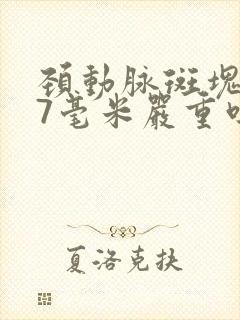 頚動脉斑塊
7毫米嚴重
夏洛克扶